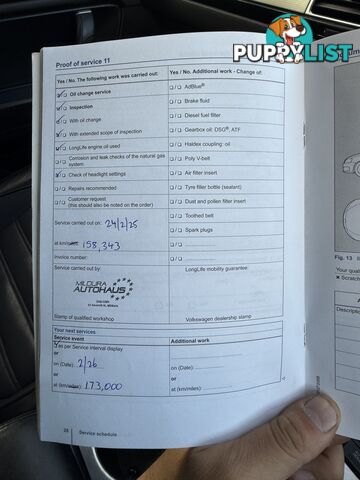 PUPPY
LIST
Proof of service 11
Yes / No. The following work was carried out:
Oil change service
Inspection
With oil change
With extended scope of inspection
LongLife engine oil used
Corrosion and leak checks of the natural gas
system
Check of headlight settings
Repairs recommended
Customer request
(this should also be noted on the order)
Service carried out on: 24/2/25
at km/miles: 158,343
Invoice number:
Service carried out by:
MILDURA
AUTOHAUS
Stamp of qualified workshop
Yes / No. Additional work - Change of:
AdBlue®
Brake fluid
Diesel fuel filter
Gearbox oil: DSG®, ATF
Haldex coupling: oil
Poly V-belt
Air filter insert
Tyre filler bottle (sealant)
Dust and pollen filter insert
Toothed belt
Spark plugs
LongLife mobility guarantee:
Volkswagen dealership stamp
Your next services
Service event
as per Service interval display
or
on (Date): 2/26
or
at (km/miles): 173,000
Additional work
on (Date):
or
at (km/miles):
28 Service schedule
Fig. 13
Your qual
Scratch
Descripti